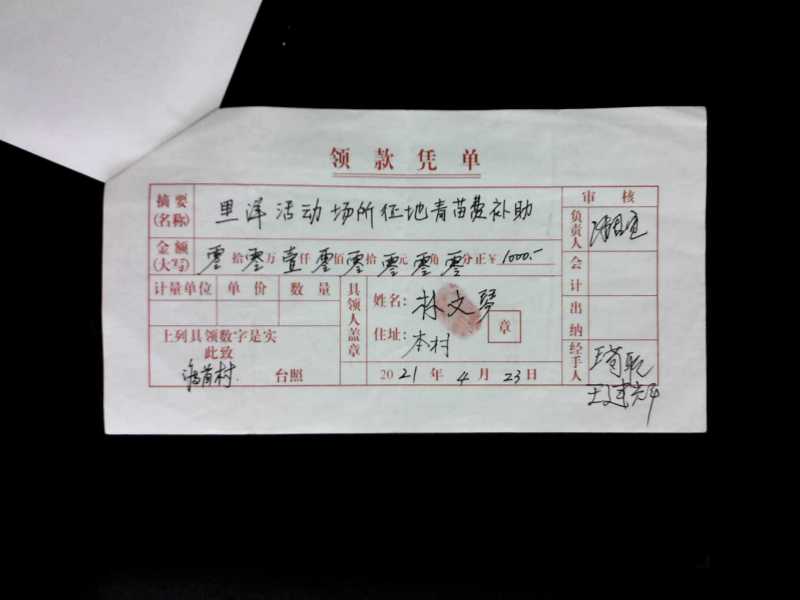 领款凭单
摘要(名称) 里洋活动场所征地青苗费补助
审核
负责人
金额(大写) 零拾零万壹仟零佰零拾零元零角零分正¥1000.-
会计
计量单位 单价 数量
具领人盖章
姓名: 林文琴
住址: 本村
章
出纳
上列具领数字是实
此致
前村 台照
2021年4月23日
经手人